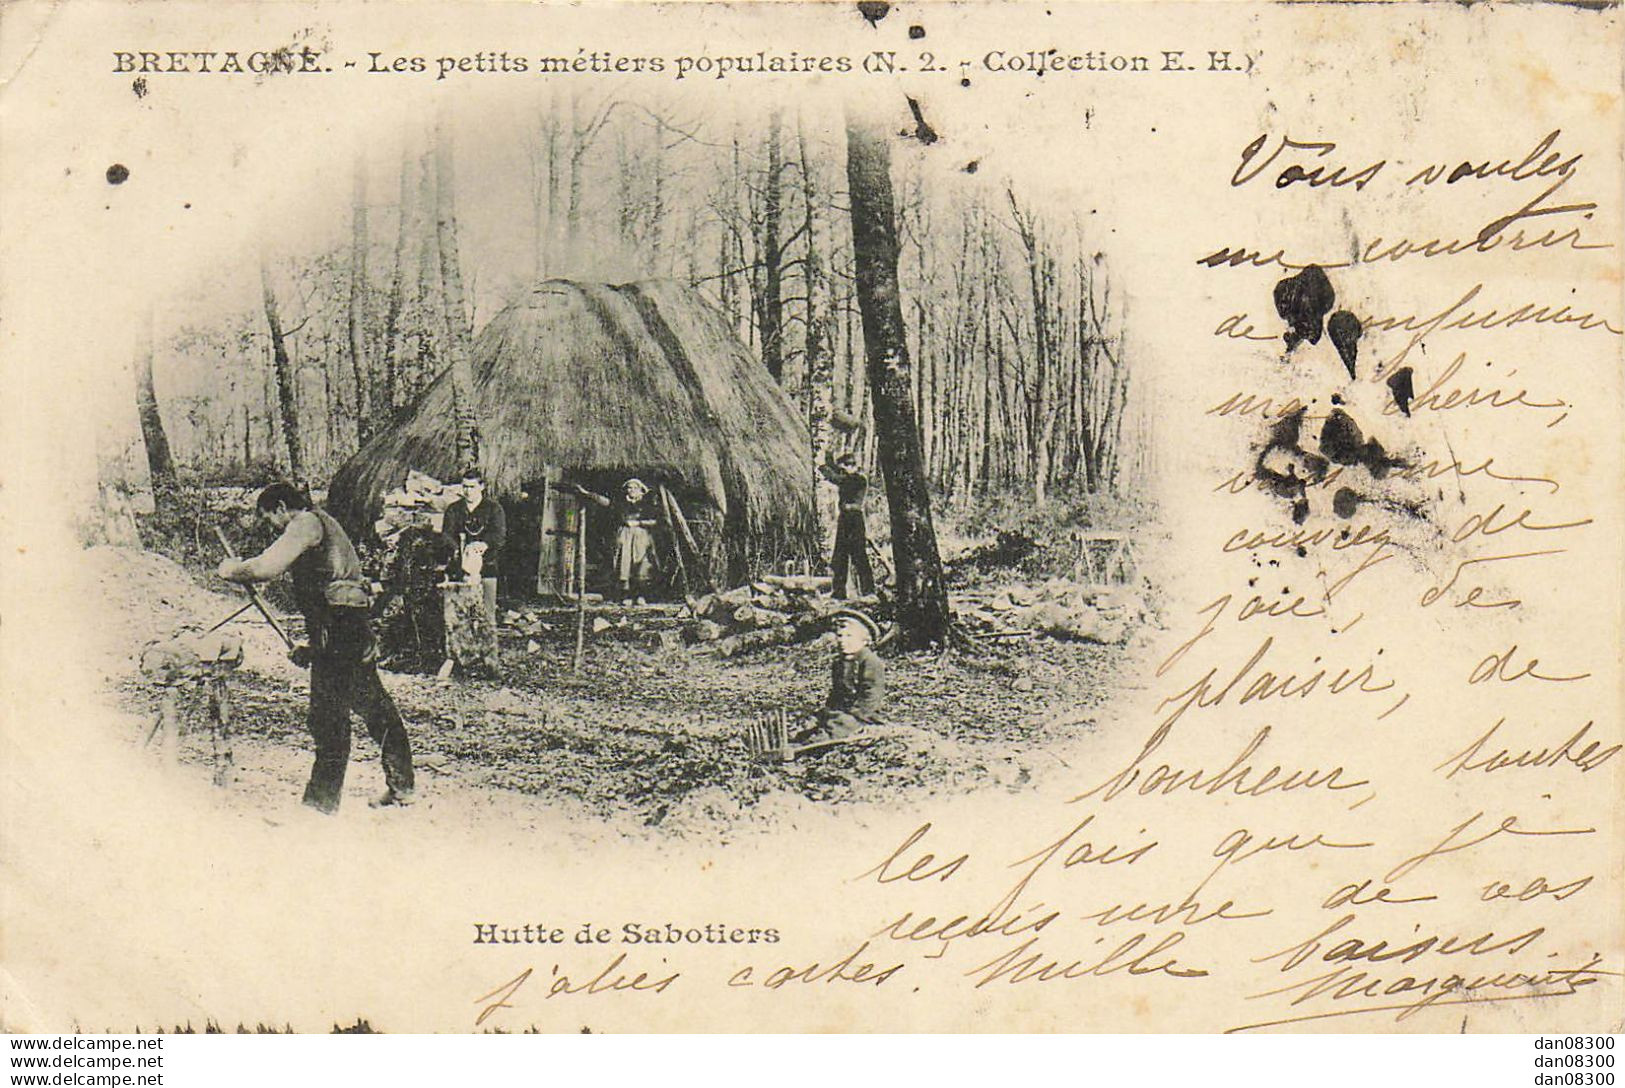 BRETAGNE. - Les petits métiers populaires (N. 2. - Collection E. H.)
Vous voulez
me couvrir
de confusion
ma chérie,
vous me
couvrez de
joie, de
plaisir, de
bonheur, toutes
les fois que je
reçois une de vos
jolies cartes. Mille baisers.
Marguerite
Hutte de Sabotiers
www.delcampe.net
www.delcampe.net
www.delcampe.net
dan08300
dan08300
dan08300